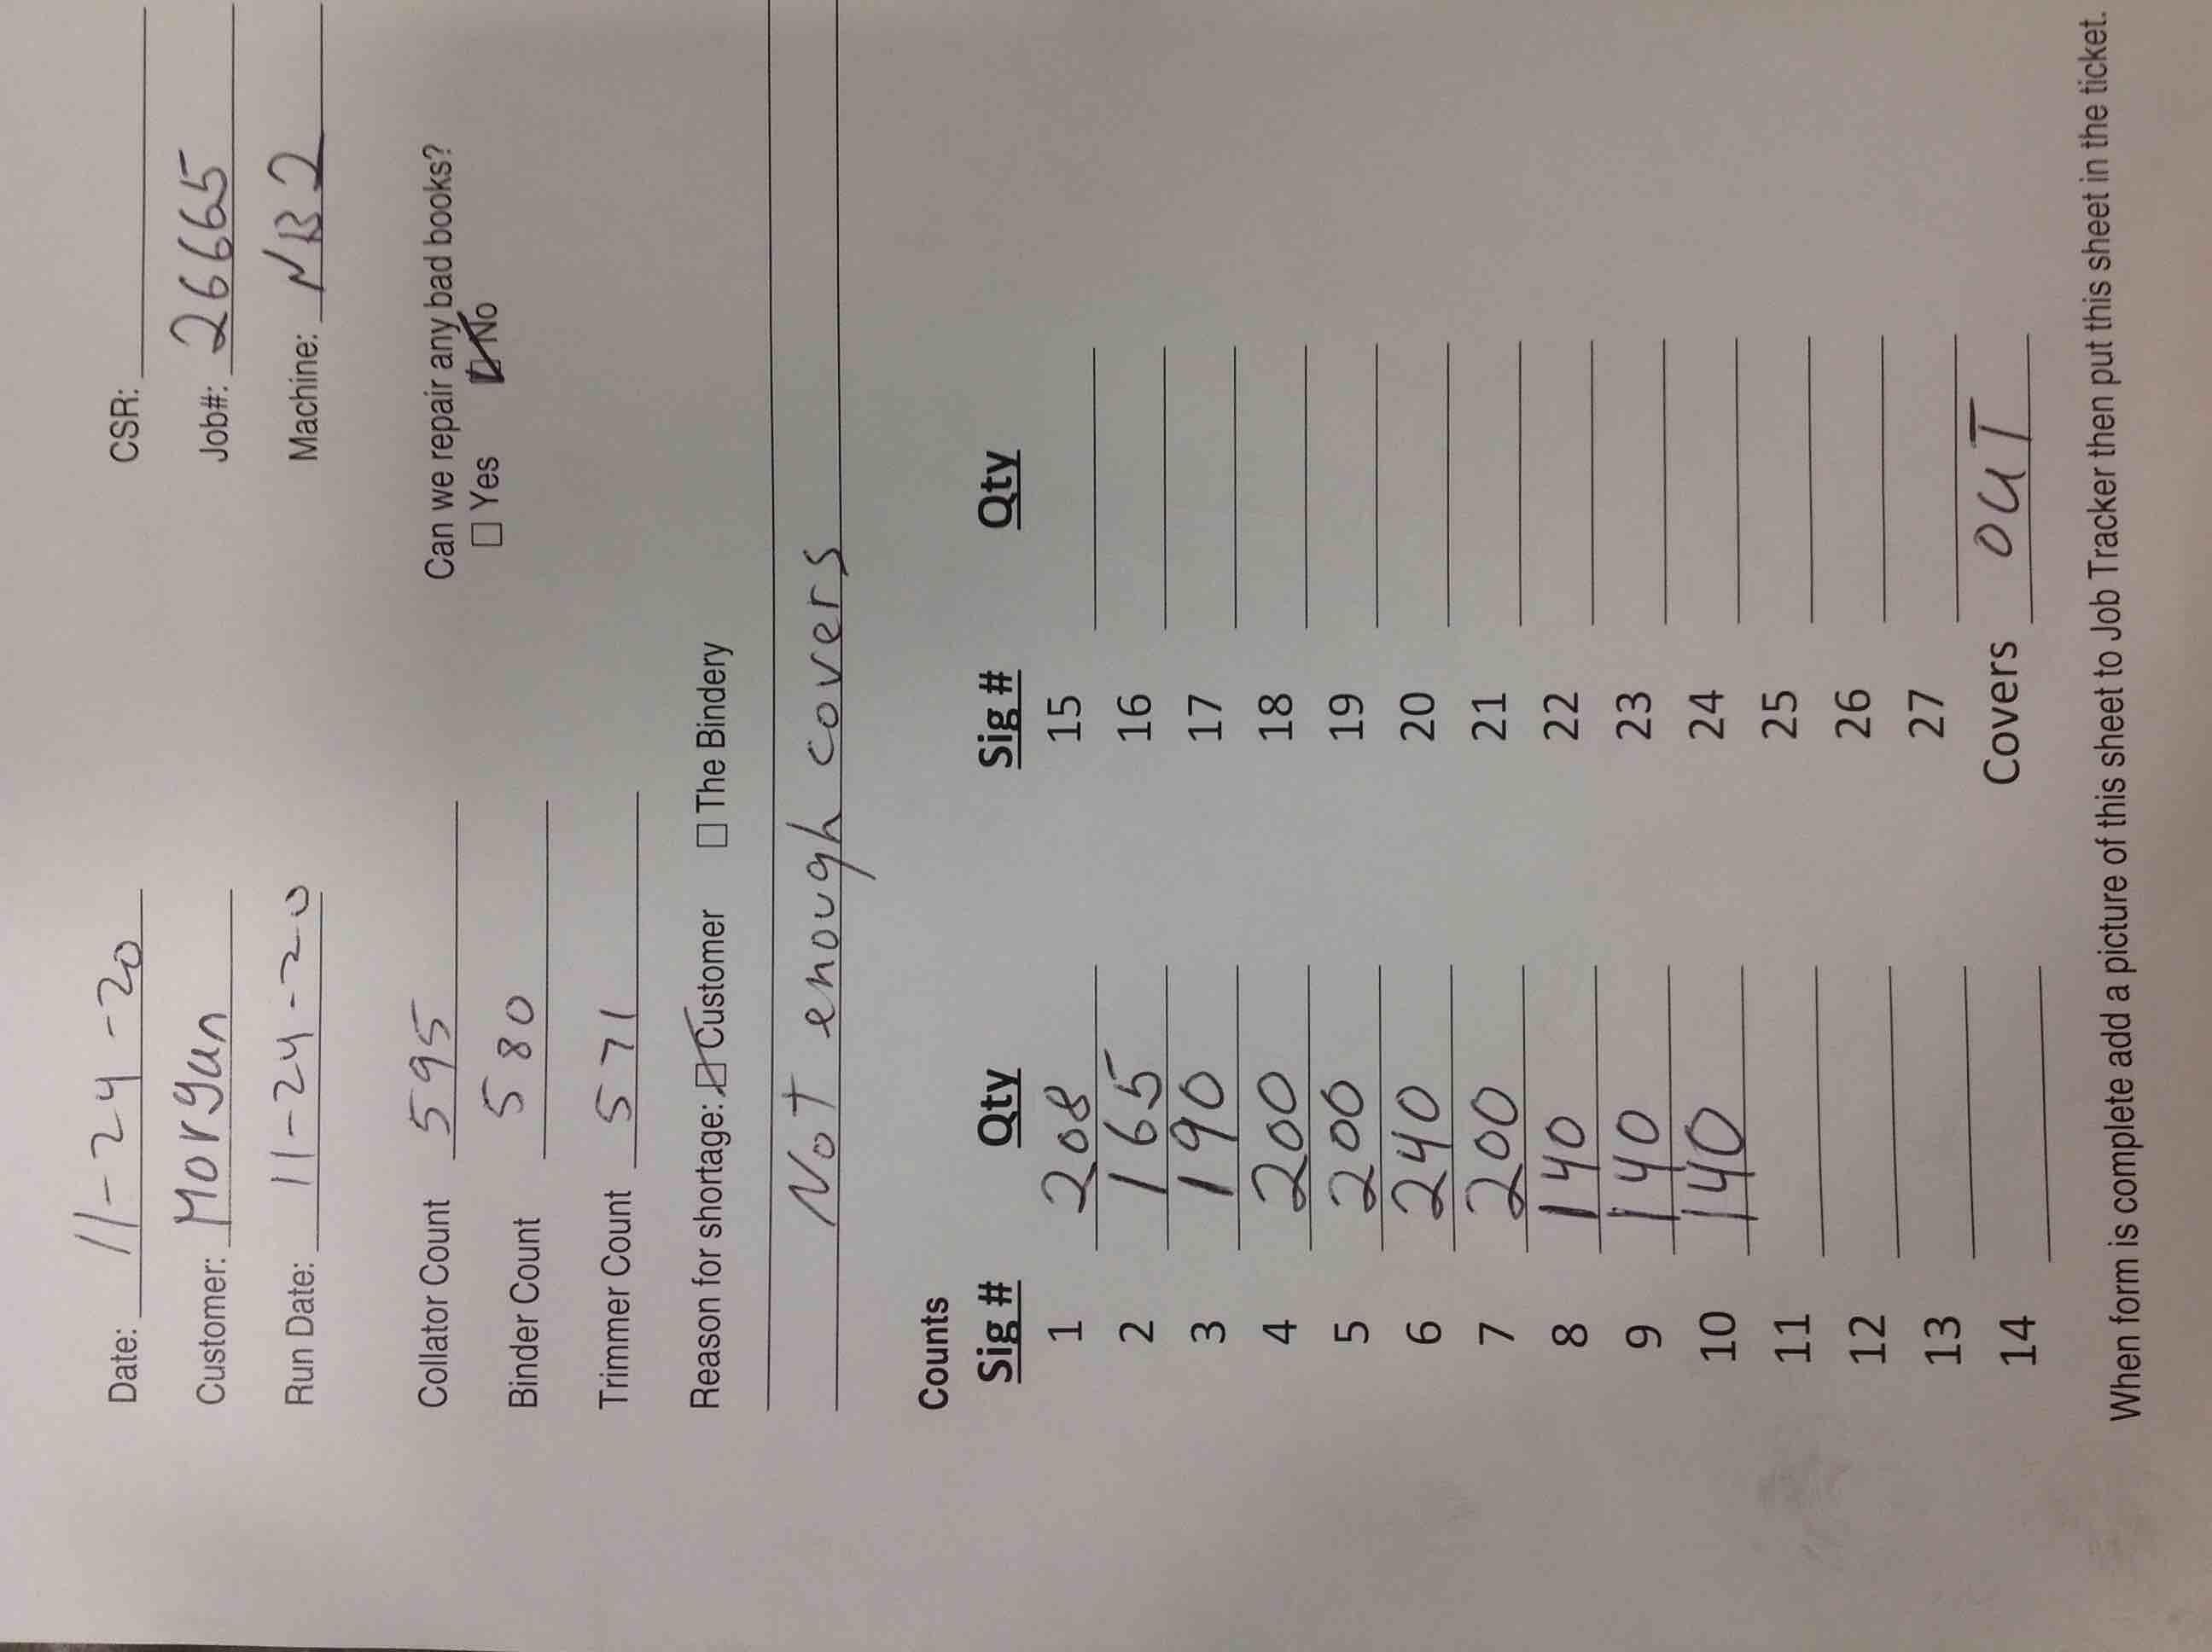 Date: 11-24-20 CSR:
Customer: Morgan Job#: 26665
Run Date: 11-24-20 Machine: NB2
Collator Count 595 Can we repair any bad books?
☐ Yes ☑ No
Binder Count 580
Trimmer Count 571
Reason for shortage: ☑ Customer ☐ The Bindery
Not enough covers
Counts
Sig # Qty Sig # Qty
1 208 15
2 165 16
3 190 17
4 200 18
5 200 19
6 240 20
7 200 21
8 140 22
9 140 23
10 140 24
11 25
12 26
13 27
14 Covers OUT
When form is complete add a picture of this sheet to Job Tracker then put this sheet in the ticket.